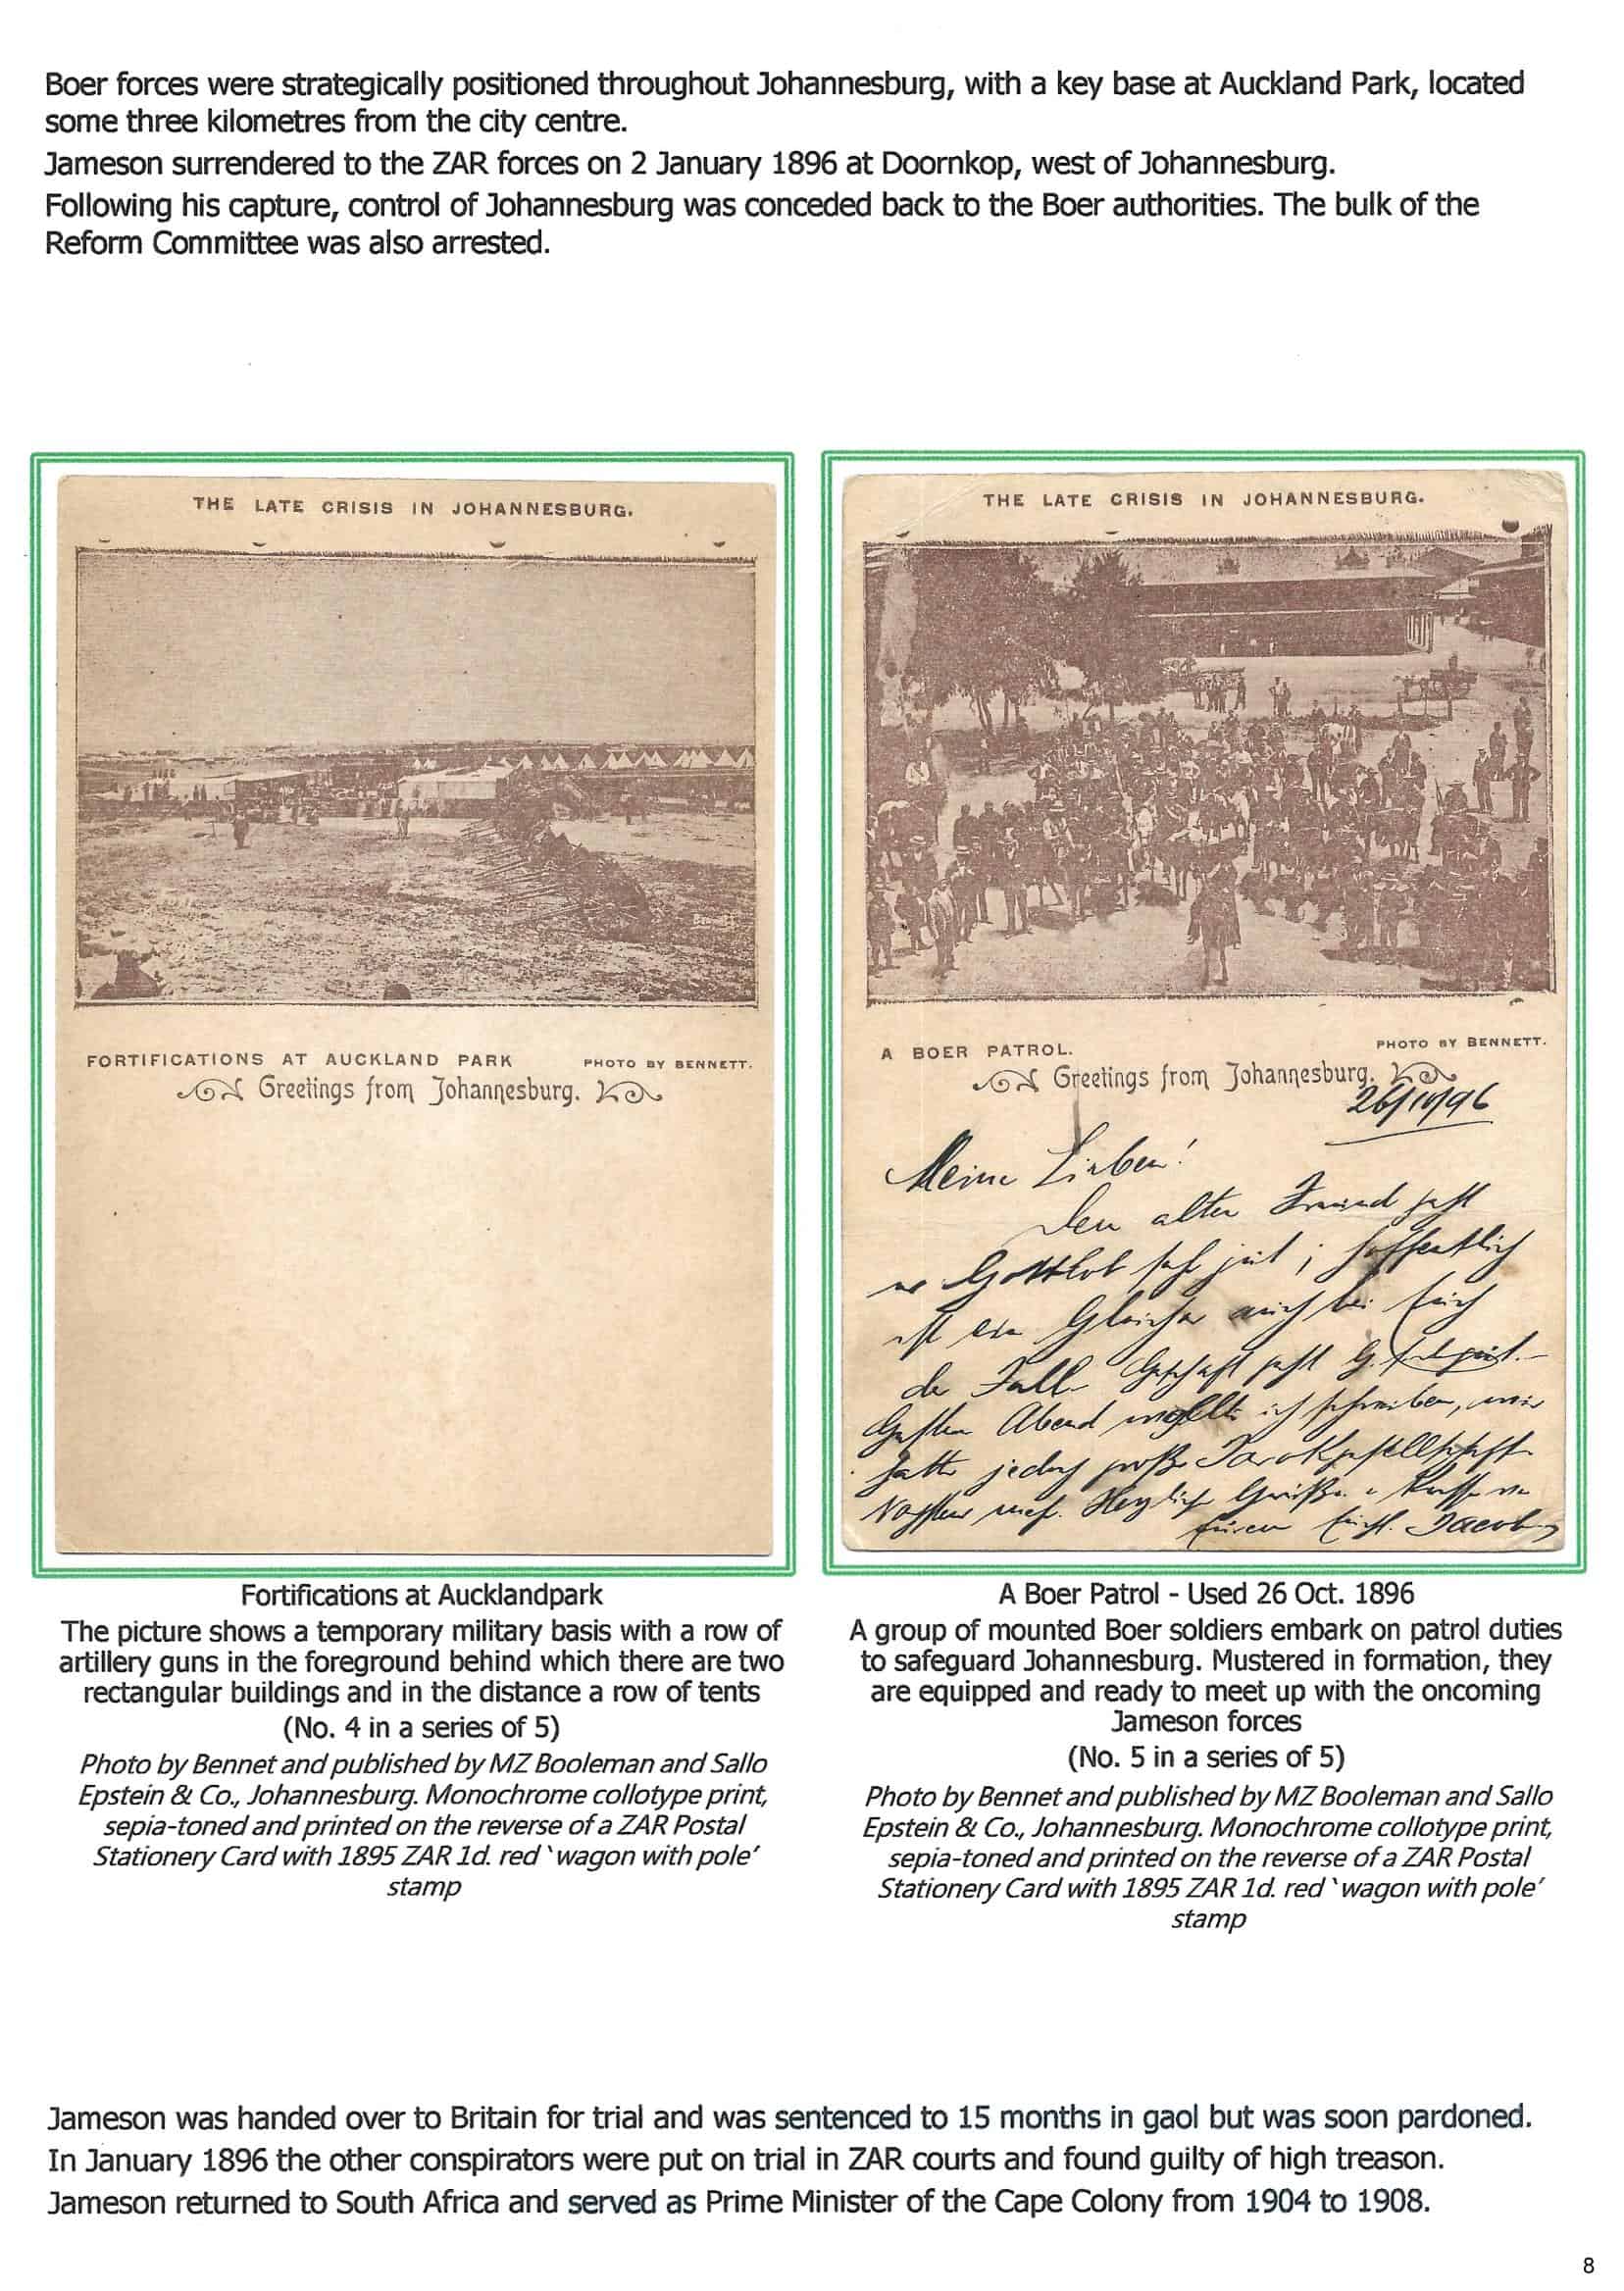 Boer forces were strategically positioned throughout Johannesburg, with a key base at Auckland Park, located
some three kilometres from the city centre.
Jameson surrendered to the ZAR forces on 2 January 1896 at Doornkop, west of Johannesburg.
Following his capture, control of Johannesburg was conceded back to the Boer authorities. The bulk of the
Reform Committee was also arrested.
THE LATE CRISIS IN JOHANNESBURG.
FORTIFICATIONS AT AUCKLAND PARK
PHOTO BY BENNETT.
Greetings from Johannesburg.
Fortifications at Aucklandpark
The picture shows a temporary military basis with a row of
artillery guns in the foreground behind which there are two
rectangular buildings and in the distance a row of tents
(No. 4 in a series of 5)
Photo by Bennet and published by MZ Booleman and Sallo
Epstein & Co., Johannesburg. Monochrome collotype print,
sepia-toned and printed on the reverse of a ZAR Postal
Stationery Card with 1895 ZAR 1d. red ‘wagon with pole’
stamp
THE LATE CRISIS IN JOHANNESBURG.
A BOER PATROL.
PHOTO BY BENNETT.
Greetings from Johannesburg.
26/10/96
Meine Lieben!
alten Freund geht
Gottlob sehr gut; hoffentlich
ist ein Gleiches auch bei Euch
der Fall. Geschäft geht
Gestern Abend wollte ich schreiben, wir
hatten jedoch große Tarokgesellschaft
Herzliche Grüße
Jacob
A Boer Patrol - Used 26 Oct. 1896
A group of mounted Boer soldiers embark on patrol duties
to safeguard Johannesburg. Mustered in formation, they
are equipped and ready to meet up with the oncoming
Jameson forces
(No. 5 in a series of 5)
Photo by Bennet and published by MZ Booleman and Sallo
Epstein & Co., Johannesburg. Monochrome collotype print,
sepia-toned and printed on the reverse of a ZAR Postal
Stationery Card with 1895 ZAR 1d. red ‘wagon with pole’
stamp
Jameson was handed over to Britain for trial and was sentenced to 15 months in gaol but was soon pardoned.
In January 1896 the other conspirators were put on trial in ZAR courts and found guilty of high treason.
Jameson returned to South Africa and served as Prime Minister of the Cape Colony from 1904 to 1908.
8